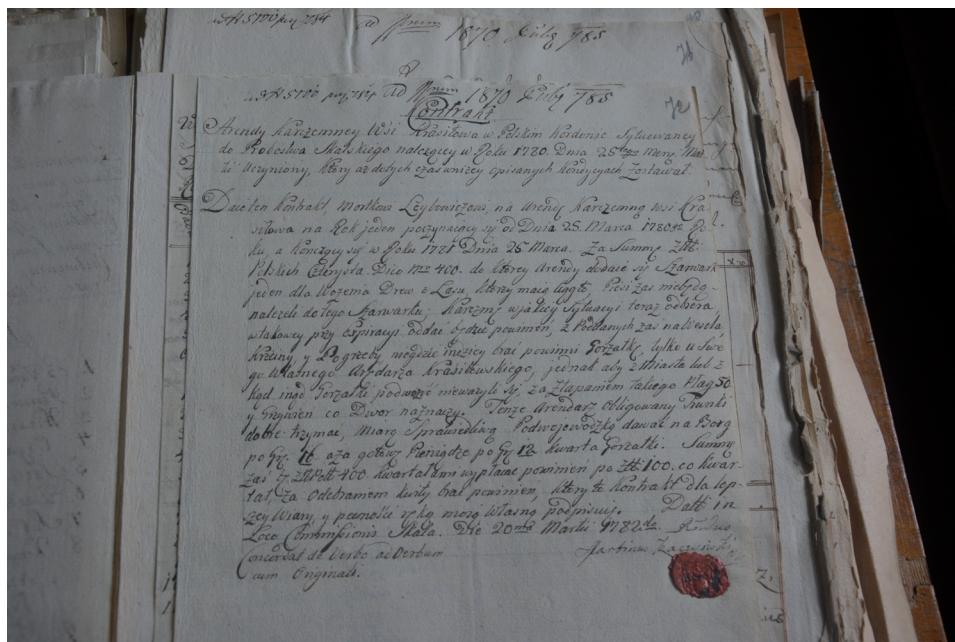 ad Nrum 1870 Julÿ 785
76
ad N 5700 prs. 784 ad Nrum 1870 Julÿ 785
72
Kontrakt
Arendy Karczemney Wsi Krasiłowa w Polskim Kordonie Sytuowaney
do Probostwa Skalskiego należącey w Roku 1780. Dnia 25
Uczyniony, który aż dotych czas w niżey opisanych Kondycyach zostawał.
Daie ten Kontrakt, Mortkowi Leybowiczowi, na Arendę Karczemną wsi Kra-
siłowa na Rok jeden poczynaiący się od Dnia 25. Marca 1780 Ro-
ku, a kończący się w Roku 1781 Dnia 25 Marca. Za Summę Złł:
Polskich Czterysta. Dico nro 400. do ktorey Arendy dodaie się Szarwark
jeden dla Wożenia Drew z Lasu, ktorzy maią ciągłe, Piesi zas niebędą
należeli do tego Szarwarku, Karczmę w jakiey Sytuacyi teraz odbiera
w takowey przy expiracyi oddać będzie powinien, z Poddanych zas na Wesela
Krzciny, y Pogrzeby nigdzie indziey brać powinni Gorzałkę, tylko u Swe-
go Własnego Arędarza Krasiłowskiego, jednak aby z Miasta lub z
kąd inąd Gorzałki podwozić nieważyli się, za złapaniem takiego Plag 50
y Grzywien co Dwor naznaczy. Tenże Arendarz Obligowany Trunki
dobre trzymać, Miarę Sprawiedliwą Podwojewodzką dawać na Borg
po Gr: 16 a za gotowe Pieniądze po Gr: 12 kwarta Gorzałki. Summę
zaś Złł Poll 400 kwartałami wypłacać powinien po Złł: 100. co kwar-
tał, za Odebraniem kwity brać powinien, ktory to Kontrakt dla lep-
szey Wiary, y pewności ręką moią własną podpisuję. Datt in
Loco Commissionis Skala. Die 20ma Martii 1782
Concordat de Verbo ad Verbum
cum Originali.